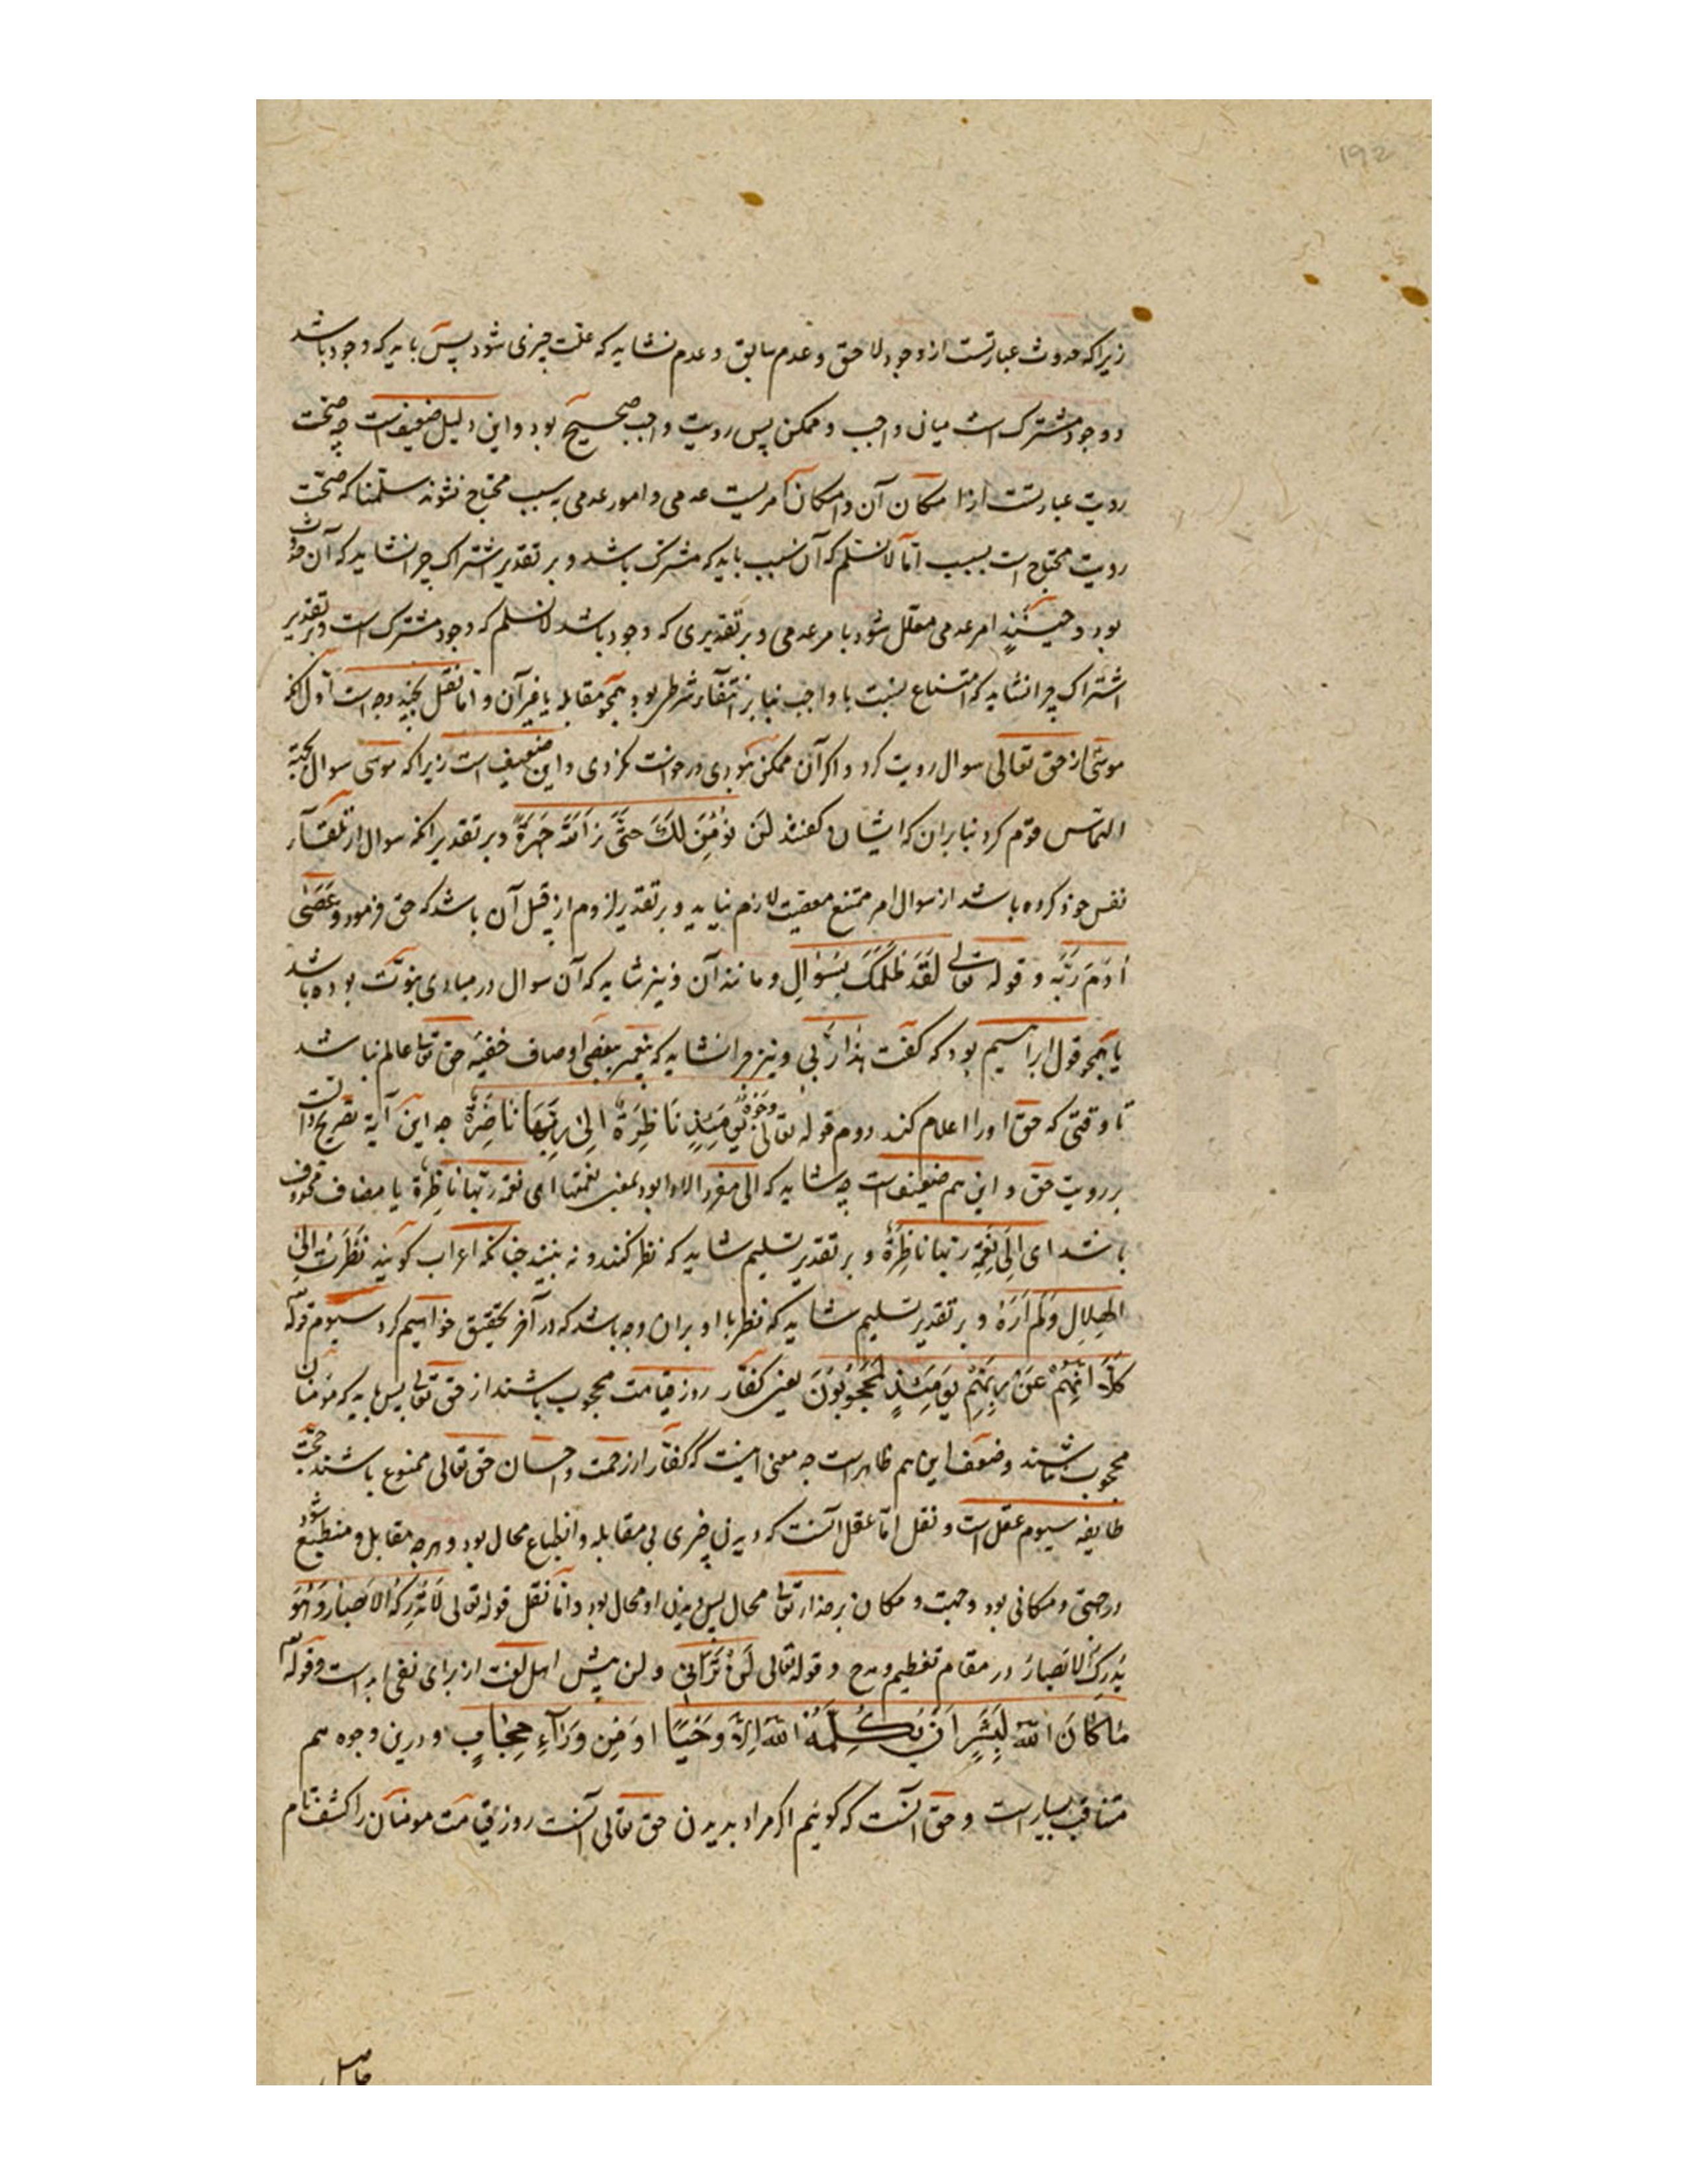 192
زیرا که حدوث عبارتست از وجود لاحق و عدم سابق و عدم نشاید که علت چیزی شود پس باید که وجود باشد
و وجود مشترک است میان واجب و ممکن پس رویت واجب صحیح بود و این دلیل ضعیف است چه صحت
رویت عبارتست از امکان آن و امکان امریست عدمی و امور عدمی به سبب محتاج نشوند سلمنا که صحت
رویت محتاج است بسبب اما لانسلم که آن سبب باید که مشترک باشد و بر تقدیر اشتراک چرا نشاید که آن حدوث
بود و حینئذٍ امر عدمی معلل شود بامر عدمی و بر تقدیری که وجود باشد لانسلم که وجود مشترک است و بر تقدیر
اشتراک چرا نشاید که امتناع نسبت با واجب بنا بر انتفآء شرطی بود همچو مقابله یا غیر آن و اما نقل بچند وجه است اول آنکه
موسی از حق تعالی سوال رویت کرد و اگر آن ممکن نبودی درخواست نکردی و این ضعیف است زیرا که موسی سوال بجهة
التماس قوم کرد بنا بران که ایشان گفتند لَن نُؤمِنَ لَکَ حتّی نَرَ اللهَ جَهرَةً و بر تقدیر انکه سوال از تلقآء
نفس خود کرده باشد از سوال امر ممتنع معصیت لازم نیاید و بر تقدیر لزوم از قبیل آن باشد که حق فرمود وَعَصٰی
اٰدَمَ رَبَّه و قوله تعالی لَقَد ظَلَمَکَ بِسُؤالِ و مانند آن و نیز شاید که آن سوال در مبادی نبوّت بوده باشد
یا همچو قول ابراهیم بود که گفت هذا رَبّی و نیز چرا نشاید که پیغمبر ببعضی اوصاف خفیّه حق تعالی عالم نباشد
تا وقتی که حق اورا اعلام کند دوم قوله تعالی وُجُوهٌ یَومَئِذٍ نَاظِرَةٌ اِلی رَبِّهَا نَاضِرَةٌ چه این آیة تصریح است
بر رویت حق و این هم ضعیف است چه شاید که الی مفرد الاء بود بمعنی نعمتها ای نعمة ربّها ناظِرةٌ یا مضاف محذوف
باشد ای اِلٰی نِعمَةِ ربّها ناظِرَةٌ و بر تقدیر تسلیم شاید که نظر کنند و نه بینند چنانکه اعراب گویند نَظَرتُ اِلَی
الهِلالِ وَلَم اَرَهُ و بر تقدیر تسلیم شاید که نظر با او بران وجه باشد که در آخر تحقیق خواهیم کرد سیوم قوله
کَلّا اِنَّهُم عَن رَبِّهِم یَومَئِذٍ لَمَحجُوبُونَ یعنی کفّار روز قیامت محجوب باشند از حق تعالی پس باید که مومنان
محجوب نباشند و ضعف این هم ظاهر است چه معنی اینست که کفّار از رحمت و احسان حق تعالی ممنوع باشند حجّت
طایفه سیوم عقل است و نقل امّا عقل آنست که دیدن چیزی بی مقابله و انطباع محال بود و هرچه مقابل و منطبع شود
در جهتی و مکانی بود و جهت و مکان بر خدای تعالی محال پس دیدن او محال بود و امّا نقل قوله تعالی لَاتُدرِکُهُ الاَبصَارُ وَهُوَ
یُدرِکُ الاَبصَارَ در مقام تعظیم و مدح و قوله تعالی لَن تَرَانِی و لن پیش اهل لغت از برای نفی ابد است و قوله
مَا کَانَ اللهُ لِبَشَرٍ اَن یُکَلِّمَهُ اللهُ اِلّا وَحیًا اَو مِن وَرَآءِ حِجَابٍ و درین وجوه هم
مناقب بسیار است و حق آنست که گوییم اگر مراد بدیدن حق تعالی آنست روز قیامت مومنان را کشف تام
حاصل